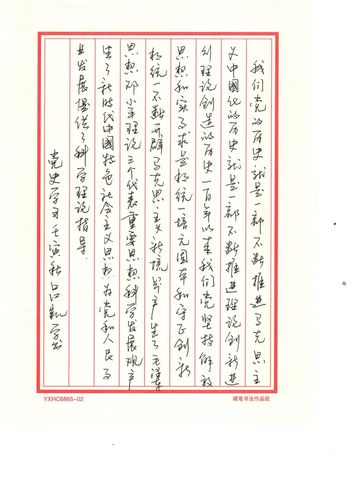 我们党的历史就是一部不断推进马克思主
义中国化的历史就是一部不断推进理论创新进
行理论创造的历史一百年以来我们党坚持解放
思想和实事求是相统一培元固本和守正创新
相统一不断开辟马克思主义新境界产生了毛泽东
思想邓小平理论三个代表重要思想科学发展观产
生了新时代中国特色社会主义思想为党和人民事
业发展提供了科学理论指导
党史学习壬寅秋吕
YXHC6865-02
硬笔书法作品纸